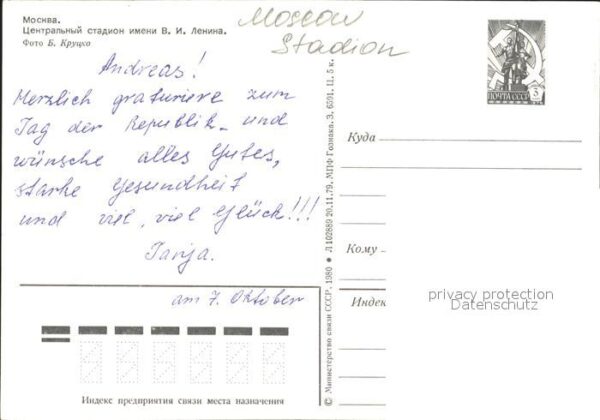 Москва.
Центральный стадион имени В. И. Ленина.
Фото Б. Круцко
Moscow
Stadion
Andreas!
Herzlich graturiere zum
Tag der Republik und
wünsche alles Gutes,
starke Gesundheit
und viel, viel Glück!!!
Tanja.
am 7. Oktober
ПОЧТА СССР
Куда
Кому
Индек
privacy protection
Datenschutz
© Министерство связи СССР. 1980 ● Л 102889 20.11.79. МПФ Гознака. З. 6591. Ц. 5 к.
Индекс предприятия связи места назначения